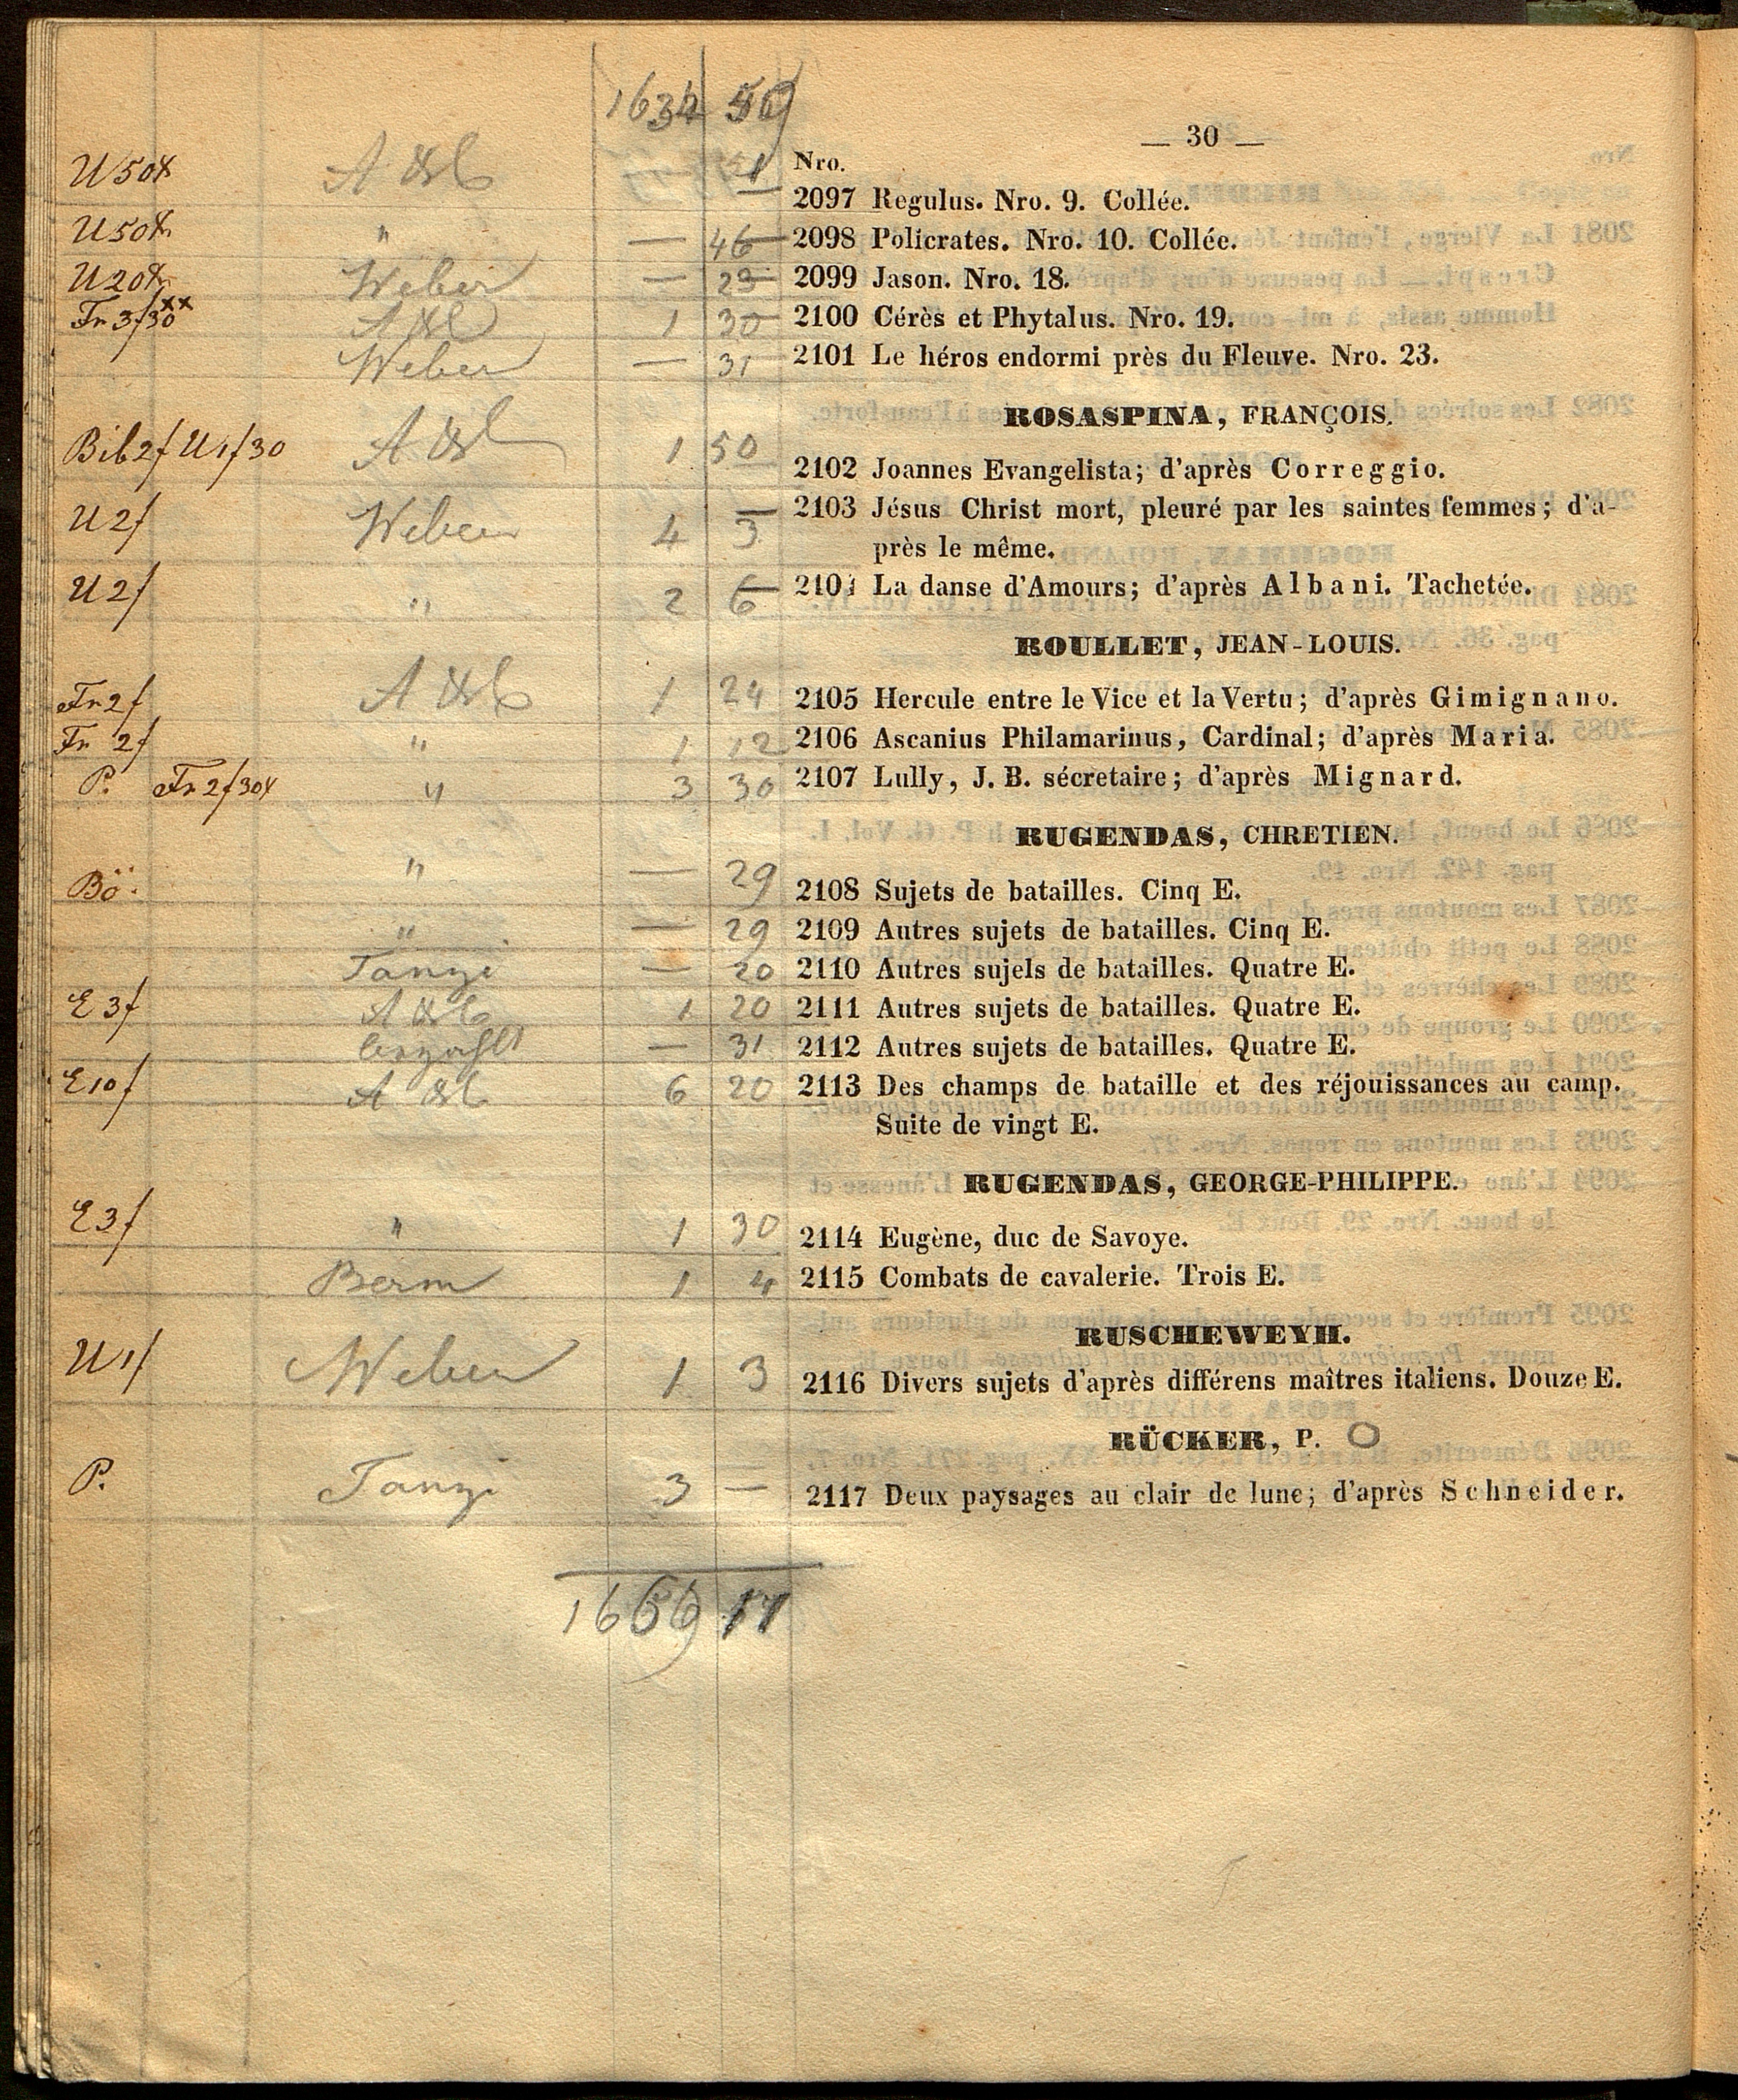 1634 59
— 30 —
Nro.
U 50x A & C 51 2097 Regulus. Nro. 9. Collée.
U 50x " — 46 2098 Policrates. Nro. 10. Collée.
U 20x Weber — 23 2099 Jason. Nro. 18.
Fr 3f30xx A & C 1 30 2100 Cérès et Phytalus. Nro. 19.
Weber — 31 2101 Le héros endormi près du Fleuve. Nro. 23.
ROSASPINA, FRANÇOIS.
Bib 2f U 1f30 A & C 1 50 2102 Joannes Evangelista; d'après Correggio.
U 2f Weber 4 3 2103 Jésus Christ mort, pleuré par les saintes femmes; d'a-
près le même.
U 2f " 2 6 2104 La danse d'Amours; d'après Albani. Tachetée.
ROULLET, JEAN-LOUIS.
Fr 2f A & C 1 24 2105 Hercule entre le Vice et la Vertu; d'après Gimignano.
Fr 2f " 1 12 2106 Ascanius Philamarinus, Cardinal; d'après Maria.
P. Fr 2f30x " 3 30 2107 Lully, J. B. sécretaire; d'après Mignard.
RUGENDAS, CHRETIEN.
Bö. " — 29 2108 Sujets de batailles. Cinq E.
" — 29 2109 Autres sujets de batailles. Cinq E.
Tanzi — 20 2110 Autres sujels de batailles. Quatre E.
E 3f A & C 1 20 2111 Autres sujets de batailles. Quatre E.
— 31 2112 Autres sujets de batailles. Quatre E.
E 10f A & C 6 20 2113 Des champs de bataille et des réjouissances au camp.
Suite de vingt E.
RUGENDAS, GEORGE-PHILIPPE.
E 3f " 1 30 2114 Eugène, duc de Savoye.
Berm 1 4 2115 Combats de cavalerie. Trois E.
RUSCHEWEYH.
U 1f Weber 1 3 2116 Divers sujets d'après différens maîtres italiens. Douze E.
RÜCKER, P.
P. Tanzi 3 — 2117 Deux paysages au clair de lune; d'après Schneider.
1669 17